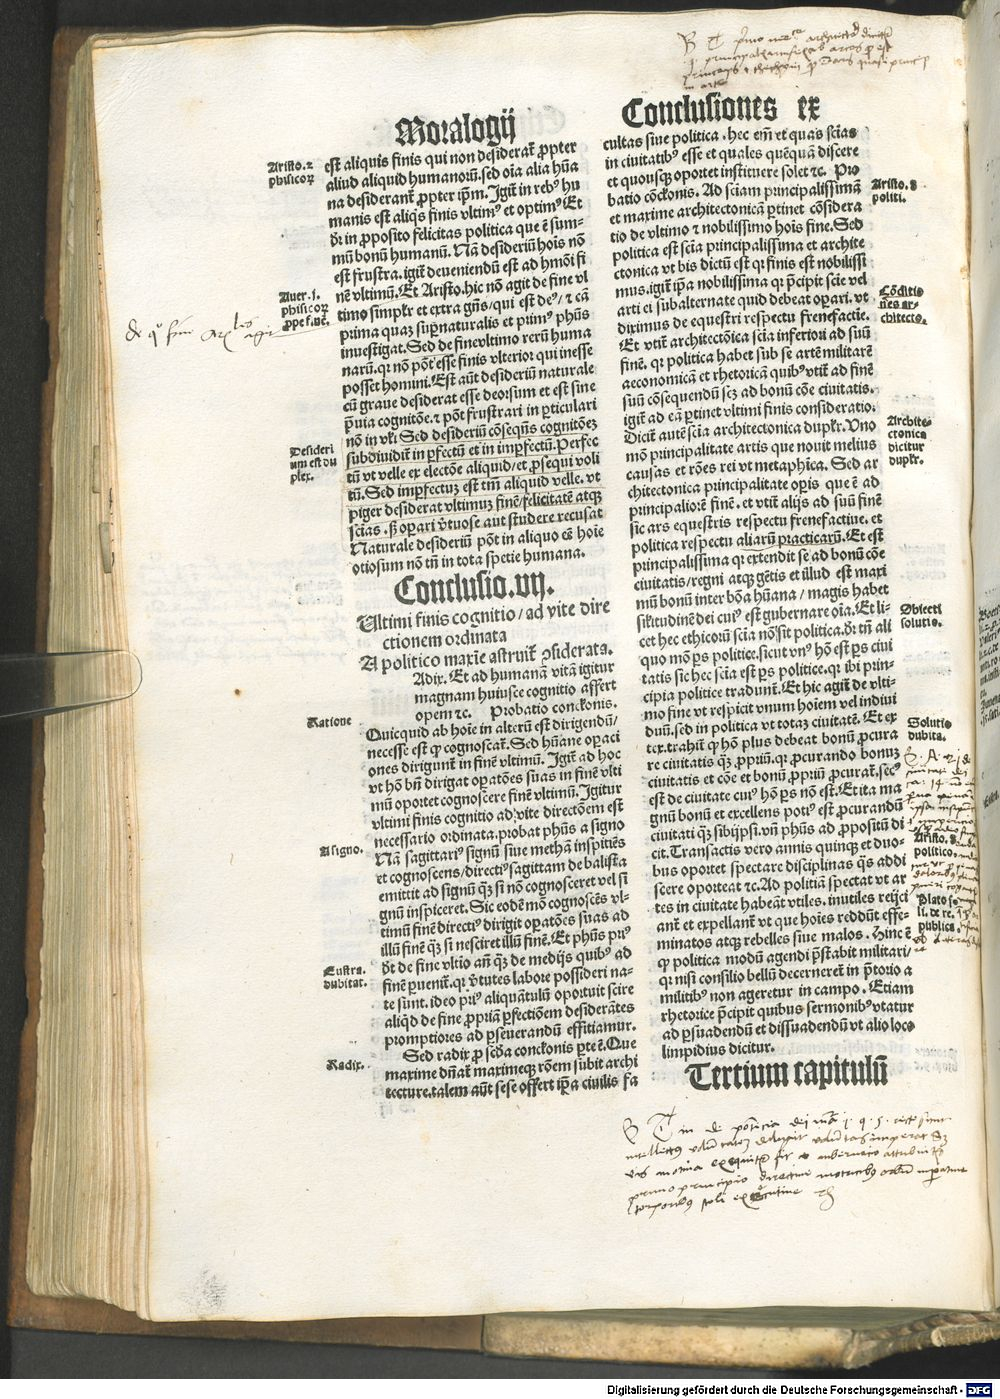 Moralogij
est aliquis finis qui non desiderat̃ ꝓpter
aliud aliquid humanorũ. sed oĩa alia hũa
na desiderant̃ ꝓpter ip̃m. Igit̃ in reb⁹ hu
manis est aliq̃s finis vltim⁹ et optim⁹. Et
dr̃ in ꝓposito felicitas politica que ẽ sum-
mũ bonũ humanũ. Nã desideriũ hoĩs nõ
est frustra. igit̃ deueniendũ est ad hmõi fi
nẽ vltimũ. Et Aristo. hic nõ agit de fine vl
timo simplr̃ et extra gñs/ qui est de⁹/ ⁊ cã
prima quaz suꝑnaturalis et prim⁹ phũs
inuestigat. Sed de fine vltimo rerũ huma
narũ. qr̃ nõ põt esse finis vlterior qui inesse
posset homini. Est aũt desideriũ naturale
cũ graue desiderat esse deorsum et est sine
p̃uia cognitõe. ⁊ põt frustrari in ꝑticulari
nõ in vl̃i. Sed desideriũ cõseq̃ns cognitõez
subdiuidit̃ in ꝑfectũ et in imꝑfectũ. Perfec
tũ vt velle ex electõe aliquid/ et ꝓsequi voli
tũ. Sed imꝑfectuz est tm̃ aliquid velle. vt
piger desiderat vltimuz finẽ/ felicitatẽ atqꝫ
scias. sꝫ oꝑari v̓tuose aut studere recusat
Naturale desideriũ põt in aliquo eẽ hoĩe
otiosum nõ tñ in tota spetie humana.
Conclusio. vij.
Vltimi finis cognitio/ ad vite dire
ctionem ordinata
A politico maxĩe astruit̃ ꝯsiderata.
Adix. Et ad humanã vitã igitur
magnam huiusce cognitio affert
opem ⁊c. Probatio conc̃lonis.
Quicquid ab hoĩe in alterũ est dirigendũ/
necesse est ꝙ cognoscat̃. Sed hũane oꝑaci
ones dirigunt̃ in finẽ vltimũ. Igit̃ ad hoc
vt hõ bñ dirigat oꝑatões suas in finẽ vlti
mũ oportet cognoscere finẽ vltimũ. Igitur
vltimi finis cognitio ad vite directõem est
necessario ordinata. probat phũs a signo
Nã sagittari⁹ signũ siue methã inspitiẽs
et cognoscens/ directi⁹ sagittam de balista
emittit ad signũ qꝫ si nõ cognosceret vel si
gnũ inspiceret. Sic eodẽ mõ cognoscẽs vl-
timũ finẽ directi⁹ dirigit oꝑatões suas ad
illũ finẽ qꝫ si nesciret illũ finẽ. Et phũs pri⁹
dt̃ de fine vltĩo añ qꝫ de medijs quib⁹ ad
finẽ ꝑuenit̃. qr̃ v̓tutes labore possideri na-
te sunt. ideo pri⁹ aliquãtulũ oportuit scire
aliq̃d de fine ꝓpriã ꝑfectiõem desiderãtes
promptiores ad ꝑseuerandũ effitiamur.
Sed radix ꝓ scd̃a conc̃lonis ꝑte ẽ. Que
maxime dñat̃ maximeqꝫ rõem subit archi
tecture. talem aũt sese offert ip̃a ciuilis fa
Aristo. 2
phisicoꝝ
Auer. 1.
phisicoꝝ
ꝓpe f. uẽ.
Desideri
um est du
plex.
Ratione
A signo.
Eustra.
dubitat.
Radix.
Conclusiones ex
cultas siue politica. hec em̃ et quas scias
in ciuitatib⁹ esse et quales quẽquã discere
et quousqꝫ oportet instituere solet ⁊c. Pro
batio cõclonis. Ad sciam principalissimã
et maxime architectonicã ꝑtinet cõsidera
tio de vltimo ⁊ nobilissimo hoĩs fine. Sed
politica est scia principalissima et archite
ctonica vt bis dictũ est qr̃ finis est nobilissi
mus. igit̃ ip̃a nobilissima qr̃ p̃cipit scie vel
arti ei subalternate quid debeat oꝑari. vt
diximus de equestri respectu frenefactie.
Et vtit̃ architectõica scia inferiori ad suũ
finẽ. qr̃ politica habet sub se artẽ militarẽ
aeconomicã et rhetoricã quib⁹ vtit̃ ad finẽ
suũ cõsequendũ scꝫ ad bonũ cõe ciuitatis.
igit̃ ad eã ꝑtinet vltimi finis consideratio.
Dicit̃ autẽ scia architectonica duplr̃. Vno
mõ principalitate artis que nouit melius
causas et rões rei vt metaphica. Sed ar
chitectonica principalitate oꝑis que ẽ ad
principaliorẽ finẽ. et vtit̃ alijs ad suũ finẽ
sic ars equestris respectu frenefactiue. et
politica respectu aliarũ practicarũ. Et est
principalissima qr̃ extendit se ad bonũ cõe
ciuitatis/ regni atqꝫ gẽtis et illud est maxi
mũ bonũ inter bõa hũana/ magis habet
sil̃itudinẽ dei cui⁹ est gubernare oĩa. Et li-
cet hec ethicorũ scia nõ sit politica. dr̃ tñ ali
quo mõ ꝑs politice. sicut vn⁹ hõ est ꝑs ciui
tatis sic hec scia est ꝑs politice. qr̃ ibi prin-
cipia politice tradunt̃. Et hic agit̃ de vlti-
mo fine vt respicit vnum hoiem vel indiui
duũ. sed in politica vt totaz ciuitatẽ. Et ex
tex. trahit̃ ꝙ hõ plus debeat bonũ ꝓcura
re ciuitatis qꝫ ꝓpriũ. qr̃ ꝓcurando bonuz
ciuitatis et cõe et bonũ ꝓpriũ ꝓcurat̃. sec⁹
est de ciuitate cui⁹ hõ ꝑs nõ est. Et ita ma
gnũ bonũ et excellens poti⁹ est ꝓcurandũ
ciuitati qꝫ sibijpsi. vñ phũs ad ꝓpositũ di
cit. Transactis vero annis quinqꝫ et duo-
bus oportet spectare disciplinas q̃s addi
scere oporteat ⁊c. Ad politiã spectat vt ar
tes in ciuitate habeãt̃ vtiles. inutiles reijci
ant̃ et expellant̃ vt que hoies reddũt effe-
minatos atqꝫ rebelles siue malos. Hinc ẽ
ꝙ politica modũ agendi p̃stabit militari/
qr̃ nisi consilio bellũ decerneret̃ in p̃torio a
militib⁹ non ageretur in campo. Etiam
rhetorice p̃cipit quibus sermonib⁹ vtatur
ad ꝑsuadendũ et dissuadendũ vt alio loco
limpidius dicitur.
Tertium capitulũ
Aristo. 8
politi.
Cõditio
nes ar-
chitecto.
Archite-
ctonica
dicitur
duplr̃.
Obiecti
solutio.
Solutio
dubita.
Aristo. 8.
politico.
Plato so
li. de re.
publica.
Digitalisierung gefördert durch die Deutsche Forschungsgemeinschaft - DFG